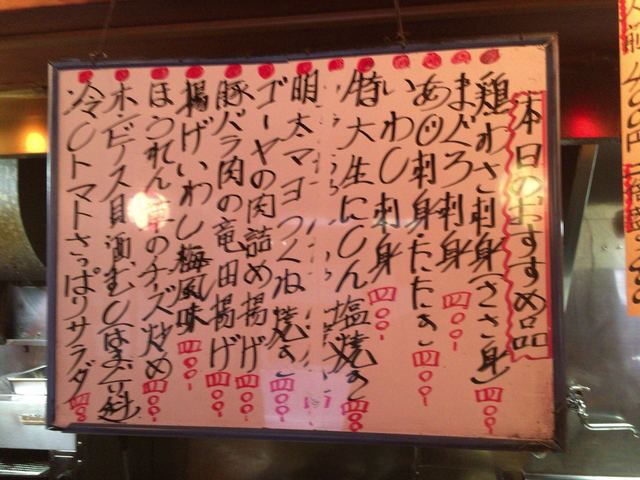 本日のおすすめ品
鶏わさ刺身(ささ身)四〇〇
まぐろ刺身 四〇〇
あじ刺身 たたき 四〇〇
いわし刺身 四〇〇
特大生にしん塩焼き 四〇〇
明太マヨつくね焼き 四〇〇
ゴーヤの肉詰め揚げ 四〇〇
豚バラ肉の竜田揚げ 四〇〇
揚げいわし梅風味 四〇〇
ほうれん草のチーズ炒め 四〇〇
ホンビノス貝酒むし
冷しトマトさっぱりサラダ 四〇〇